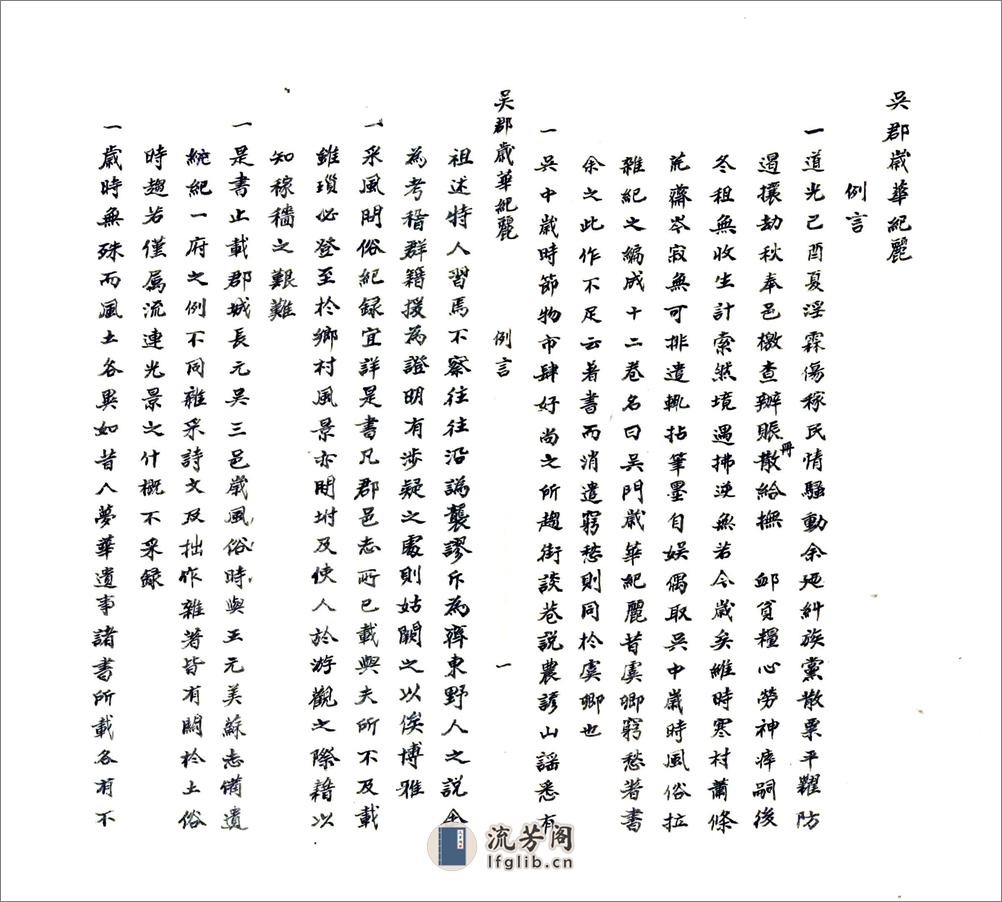 吳郡歲華紀麗
例言
一道光己酉夏淫霖傷稼民情騷動余迺糾族黨散粟平糶防
遏攘劫秋奉邑檄查辦賬冊散給撫 䘏貧糧心勞神瘁嗣後
冬租無收生計索然境遇拂逆無若今歲矣維時寒村蕭條
荒齋岑寂無可排遣輒拈筆墨自娛偶取吳中歲時風俗拉
雜紀之編成十二卷名曰吳門歲華紀麗昔虞卿窮愁著書
余之此作不足云著書而消遣窮愁則同於虞卿也
一吳中歲時節物市肆好尚之所趨街談巷說農諺山謡悉有
吳郡歲華紀麗 例言 一
祖述特人習焉不察往往沿譌襲謬斥為齊東野人之説余
為考稽群籍援為證明有涉疑之處則姑闕之以俟博雅
一采風問俗紀録宜詳是書凡郡邑志所已載與夫所不及載
雖瑣必登至於鄉村風景亦閒坿及使人於游觀之際藉以
知稼穡之艱難
一是書止載郡城長元吳三邑歲風俗時與王元美蘇志備遺
統紀一府之例不同雜采詩文及拙作雜著皆有關於土俗
時趨若僅屬流連光景之什概不采録
一歲時無殊而風土各異如昔人夢華遺事諸書所載各有不
流芳阁
lfglib.cn